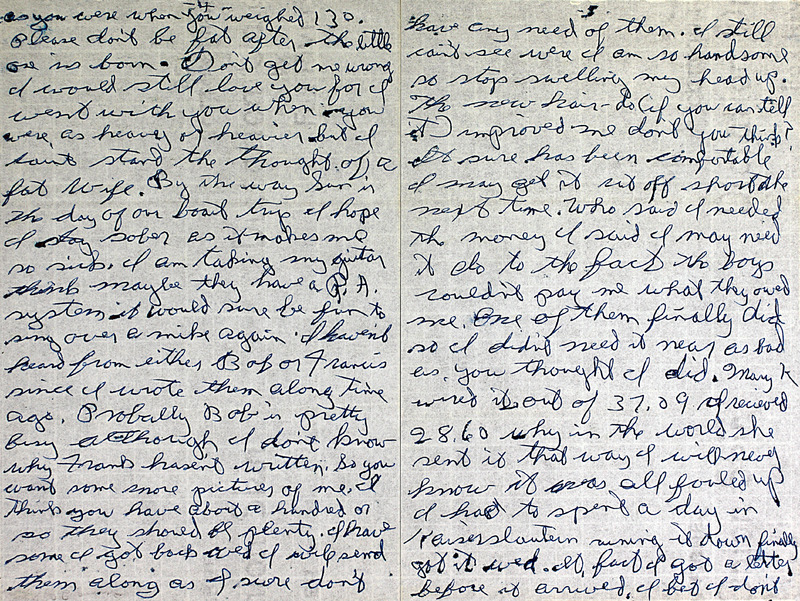 as you were when you weighed 130.
Please don't be fat after the little
one is born. Don't get me wrong
I would still love you for I
went with you when you
were as heavy or heavier but I
can't stand the thought of a
fat wife. By the way Sun is
the day of our boat trip I hope
I stay sober as it makes me
so sick. I am taking my guitar
think maybe they have a P.A.
system it would sure be fun to
sing over a mike again. I havent
heard from either Bob or Francis
since I wrote them along time
ago. Probally Bob is pretty
busy although I dont know
why Francis hasent written. So you
want some more pictures of me. I
think you have about a hundred or
so they should be plenty. I have
some I got back and I will send
them along as I sure don't
5
have any need of them. I still
can't see were I am so handsome
so stop swelling my head up.
The new hair-do (if you can tell
it) improved me dont you think?
It sure has been comfortable
I may get it cut off short the
next time. Who said I needed
the money I said I may need
it do to the fact the boys
couldn't pay me what they owed
me. One of them finally did
so I didnt need it near as bad
as you thought I did. Mary K
wired it out of 37.09 I recieved
28.60 why in the world she
sent it that way I will never
know it was all fouled up
I had to spent a day in
Kaiserslautern runing it down finally
got it wed. In fact I got a letter
before it arrived. I bet I dont